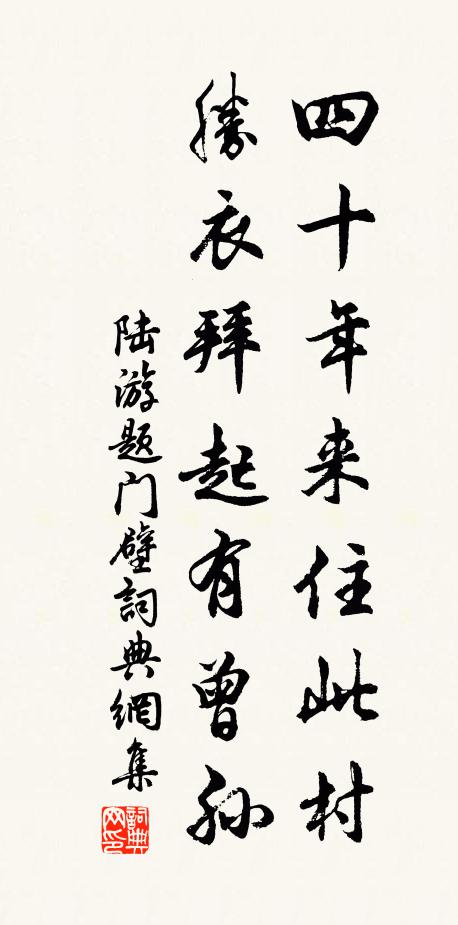 四十年来住此村
勝衣拜起有曾孫
陆游题门壁詞典網集
詞典网印